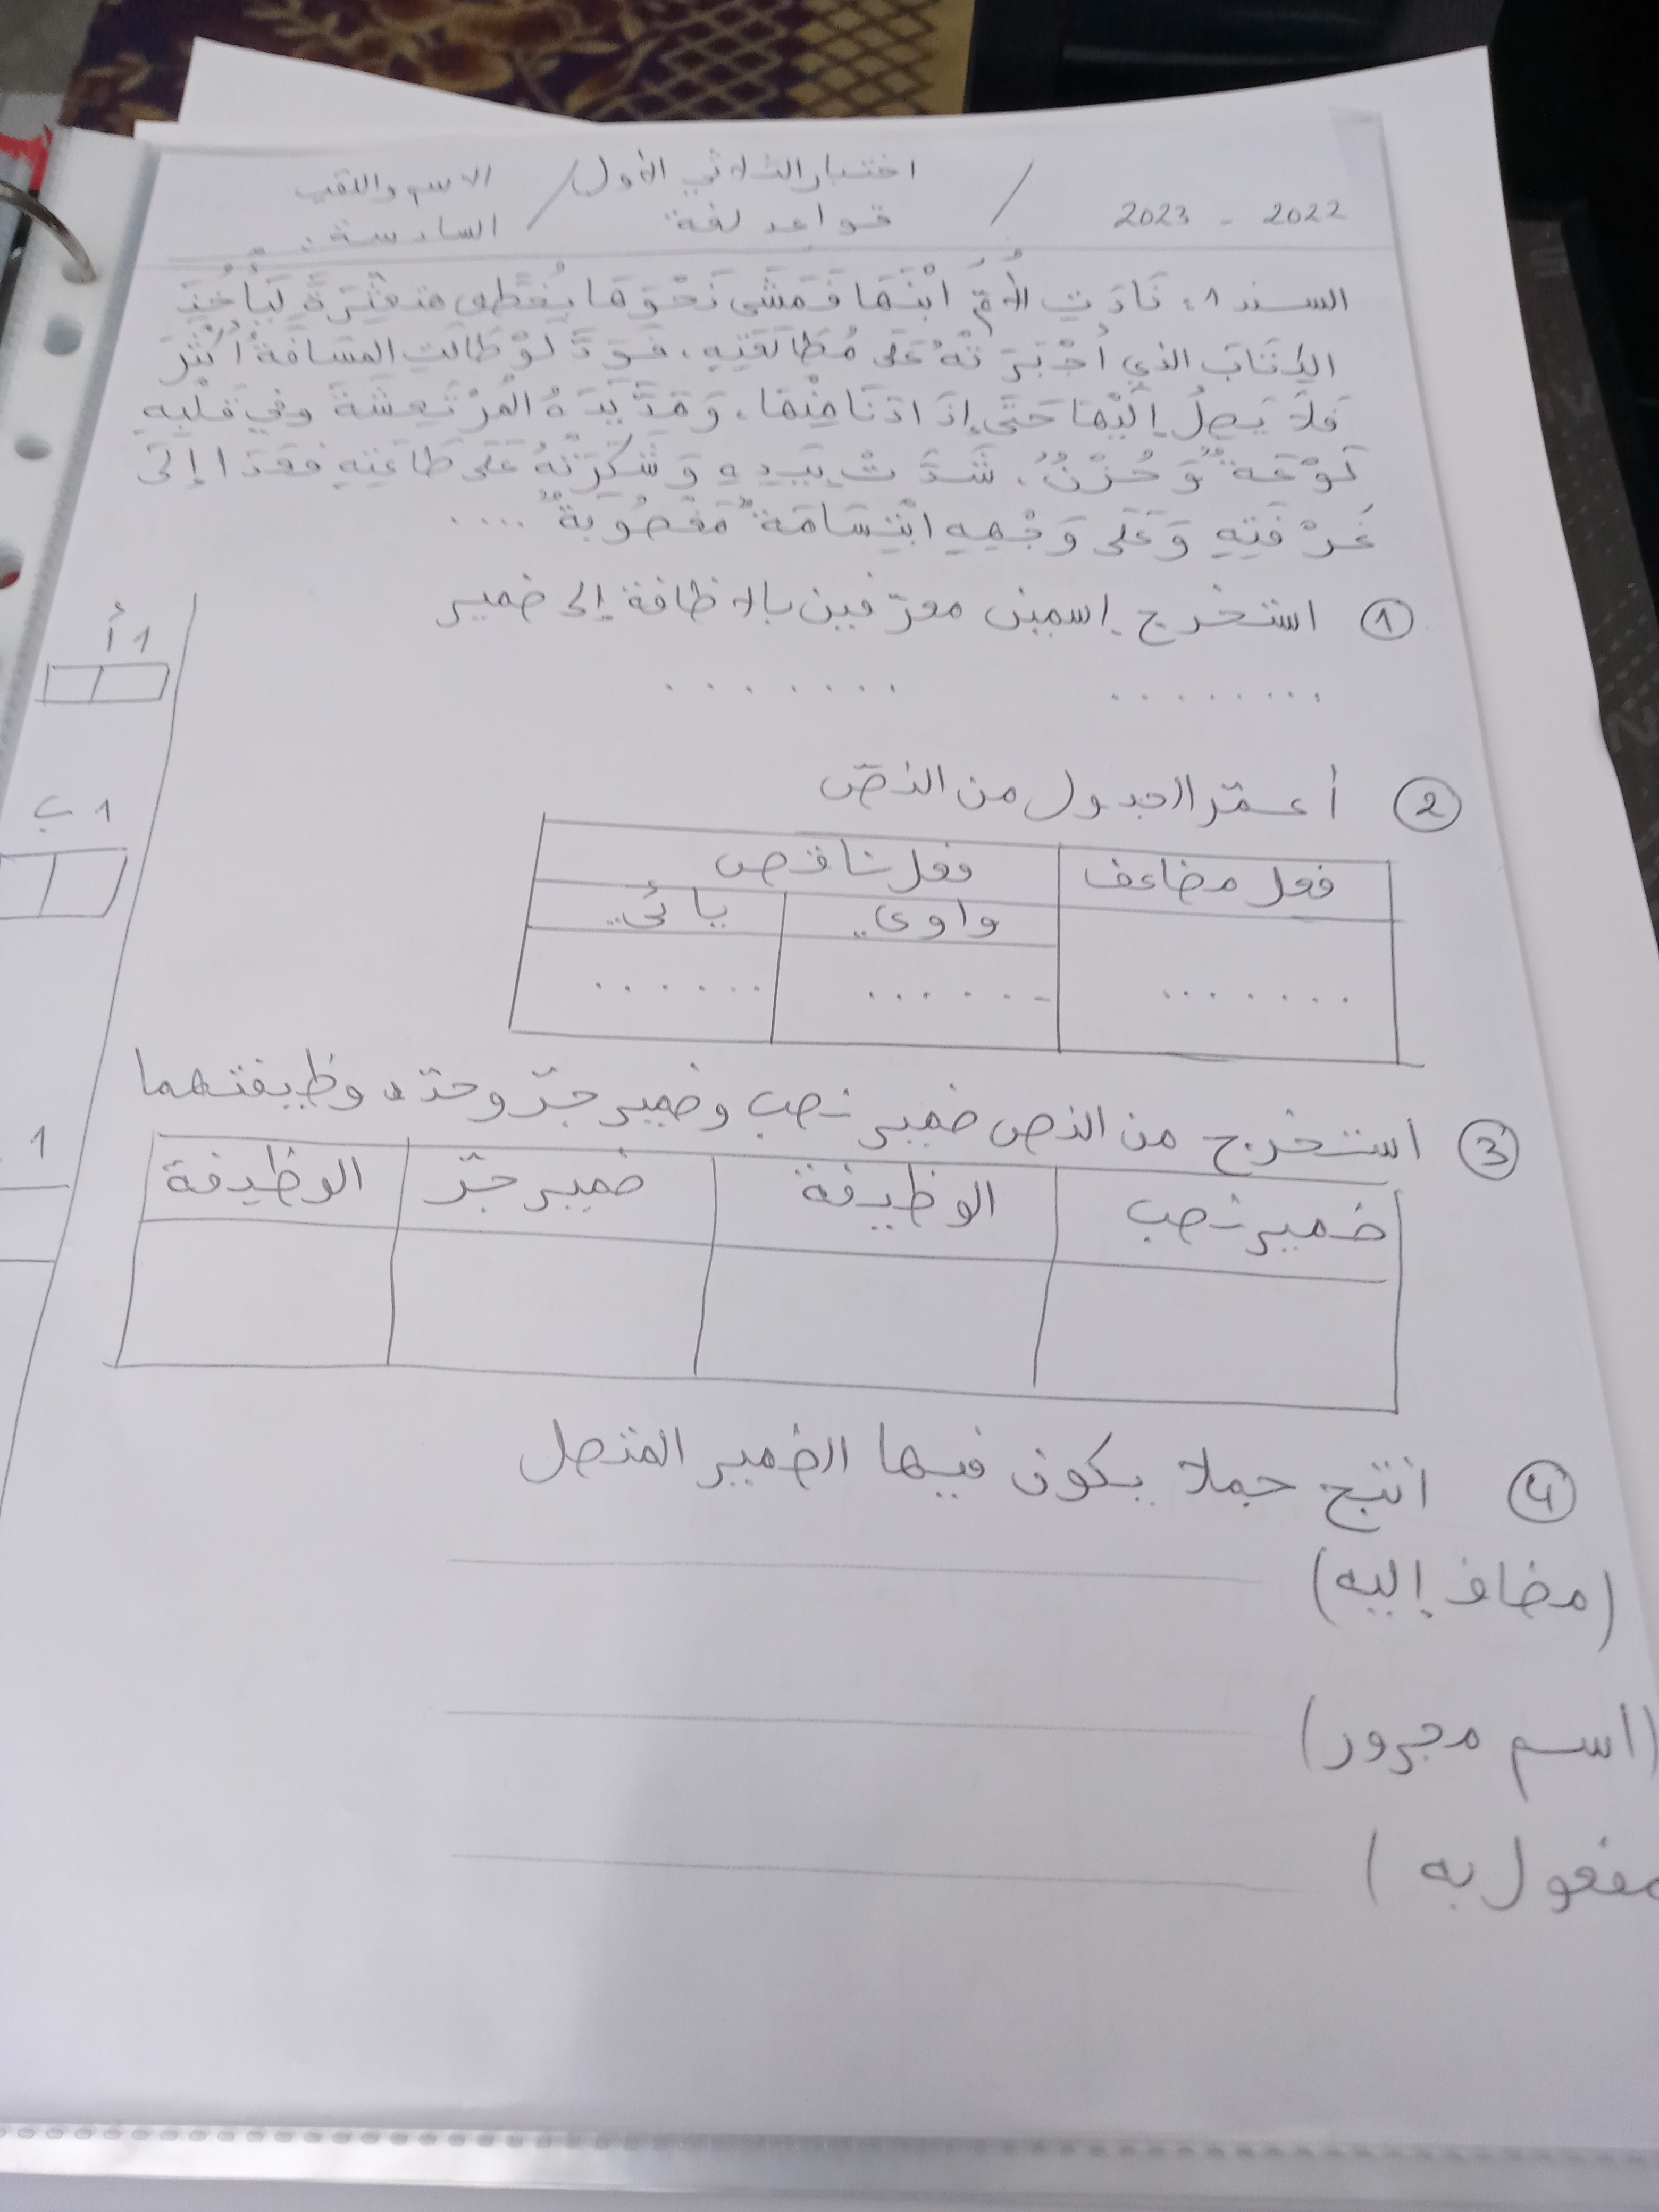 2022 - 2023 / اختبار الثلاثي الأول / الاسم واللقب
قواعد لغة السادسة :
السند 1: نَادَتِ الأُمُّ ابْنَهَا فَمَشَى نَحْوَهَا بِخُطًى مُتَعَثِّرَةٍ لِيَأْخُذَ
الكِتَابَ الذي أَجْبَرَتْهُ عَلَى مُطَالَعَتِهِ، فَوَدَّ لَوْ طَالَتِ المَسَافَةُ أَكْثَرَ
فَلاَ يَصِلُ إِلَيْهَا حَتَّى إِذَا دَنَا مِنْهَا، وَمَدَّ يَدَهُ الْمُرْتَعِشَةَ وفي قَلْبِهِ
لَوْعَةٌ وَحُزْنٌ، شَدَّتْ بِيَدِهِ وَشَكَرَتْهُ عَلَى طَاعَتِهِ فَعَدَا إِلَى
غُرْفَتِهِ وَعَلَى وَجْهِهِ ابْتِسَامَةٌ مَغْصُوبَةٌ ....
① استخرج إسمين معرّفين بالاظافة إلى ضمير
1 أ
........ ........
② أعمّر الجدول من النصّ
1 ب
فعل مضاعف فعل ناقص
واوي يائي
........ ...... ......
③ استخرج من النص ضمير نصب وضمير جرّ وحدّد وظيفتهما
1
ضمير نصب الوظيفة ضمير جرّ الوظيفة
④ انتج جملا يكون فيها الضمير المتصل
(مضاف إليه)
(اسم مجرور)
مفعول به )